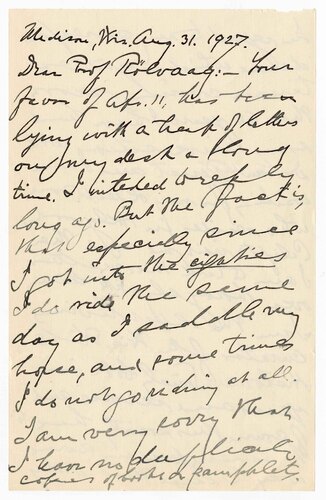 Madison, Wis. Aug. 31. 1927.
Dear Prof Rölvaag:- Your
favor of Apr. 11, has been
lying with a heap of letters
on my desk a long
time. I inteded to reply
long ago. But the fact is,
that especially since
I got into the eighties
I do not ride the same
day as I saddle my
horse, and some times
I do not go riding at all.
I am very sorry that
I have no duplicate
copies of books or pamphlets.